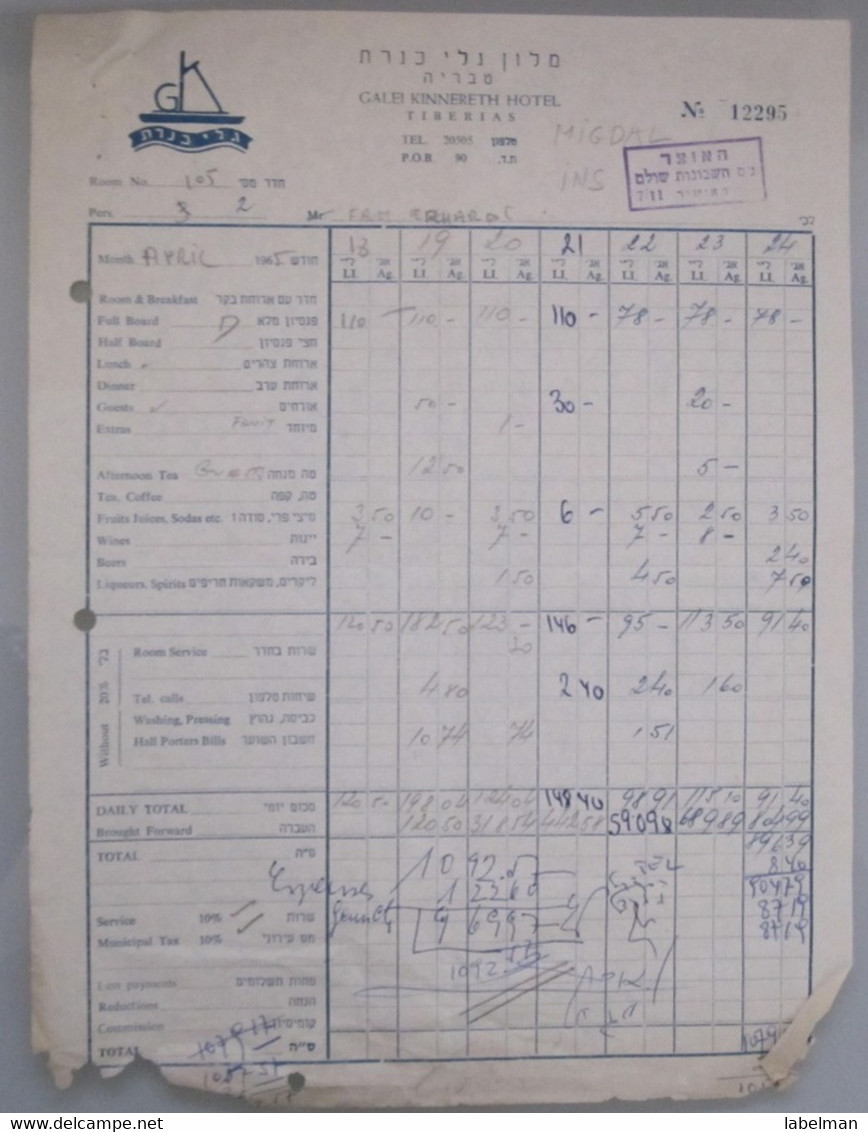 מלון גלי כנרת
טבריה
GALEI KINNERETH HOTEL
TIBERIAS
TEL. 20505 טלפון
P.O.B. 90 ת.ד.
GK
גלי כנרת
№ 12295
MIGDAL
INS
האוצר
Room No. 105 חדר מס'
Pers. 3 2 Mr FAM ERHARDT
Month APRIL 1965 חודש 18 19 20 21 22 23 24
LI. Ag. LI. Ag. LI. Ag. LI. Ag. LI. Ag. LI. Ag. LI. Ag.
Room & Breakfast חדר עם ארוחת בקר
Full Board פנסיון מלא 110 - 110 - 110 - 110 - 78 - 78 - 78 -
Half Board חצי פנסיון
Lunch ארוחת צהרים
Dinner ארוחת ערב
Guests אורחים 50 - 30 - 20 -
Extras FRUIT מיוחד 1 -
Afternoon Tea תה מנחה 12 50 5 -
Tea, Coffee תה, קפה
Fruits Juices, Sodas etc. מיצי פרי, סודה ו 3 50 10 - 3 50 6 - 5 50 2 50 3 50
Wines יינות 7 - 7 - 7 - 8 -
Beers בירה 2 40
Liqueurs, Spirits ליקרים, משקאות חריפים 1 50 4 50 7 50
120 50 182 50 123 - 146 - 95 - 113 50 91 40
Without 20% בלי
Room Service שרות בחדר
Tel. calls שיחות טלפון 4 80 2 40 2 40 1 60
Washing, Pressing כביסה, גהוץ
Hall Porters Bills חשבון השוער 10 74 74 1 51
DAILY TOTAL סכום יומי 120 50 198 04 124 04 148 40 98 91 115 10 91 40
Brought Forward העברה 120 50 318 54 442 58 590 98 689 89 804 99
TOTAL ס"ה 896 39
8 40
904 79
87 19
87 19
Expenses
Service 10% שרות
Municipal Tax 10% מס עירוני
1092.57
Less payments פחות תשלומים
Reductions הנחה
Commission קומיסיון
TOTAL ס"ה 1079 17
labelman
www.delcampe.net